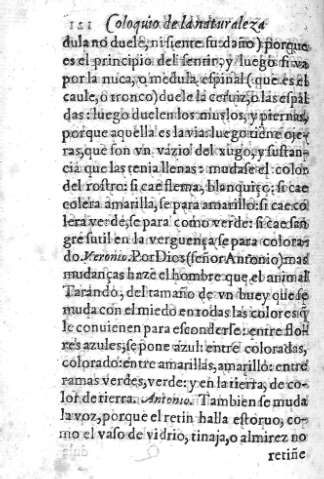 121 Coloquio de la naturaleza
dula no duele, ni siente su daño) porque
es el principio del sentir, y luego si va
por la nuca, o medula espinal (que es el
caule, o tronco) duele la ceruiz, o las espal
das: luego duelen los muslos, y piernas,
porque aquella es la via: luego tiene oje-
ras, que son vn vazio del xugo, y sustan-
cia que las tenia llenas: mudase el color
del rostro: si cae flema, blanquizo: si cae
colera amarilla, se para amarillo: si cae co
lera verde, se para como verde: si cae san
gre sutil en la verguença se para colora-
do. Veronio. Por Dios (señor Antonio) mas
mudanças haze el hombre que el animal
Tarando, del tamaño de vn buey que se
muda con el miedo en todas las colores q̃
le conuienen para esconderse: entre flo-
res azules, se pone azul: entre coloradas,
colorado: entre amarillas, amarillo: entre
ramas verdes, verde: y en la tierra, de co-
lor de tierra. Antonio. Tambien se muda
la voz, porque el retin halla estoruo, co-
mo el vaso de vidrio, tinaja, o almirez no
retiñe